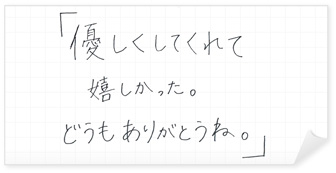 「優しくしてくれて
嬉しかった。
どうもありがとうね。」